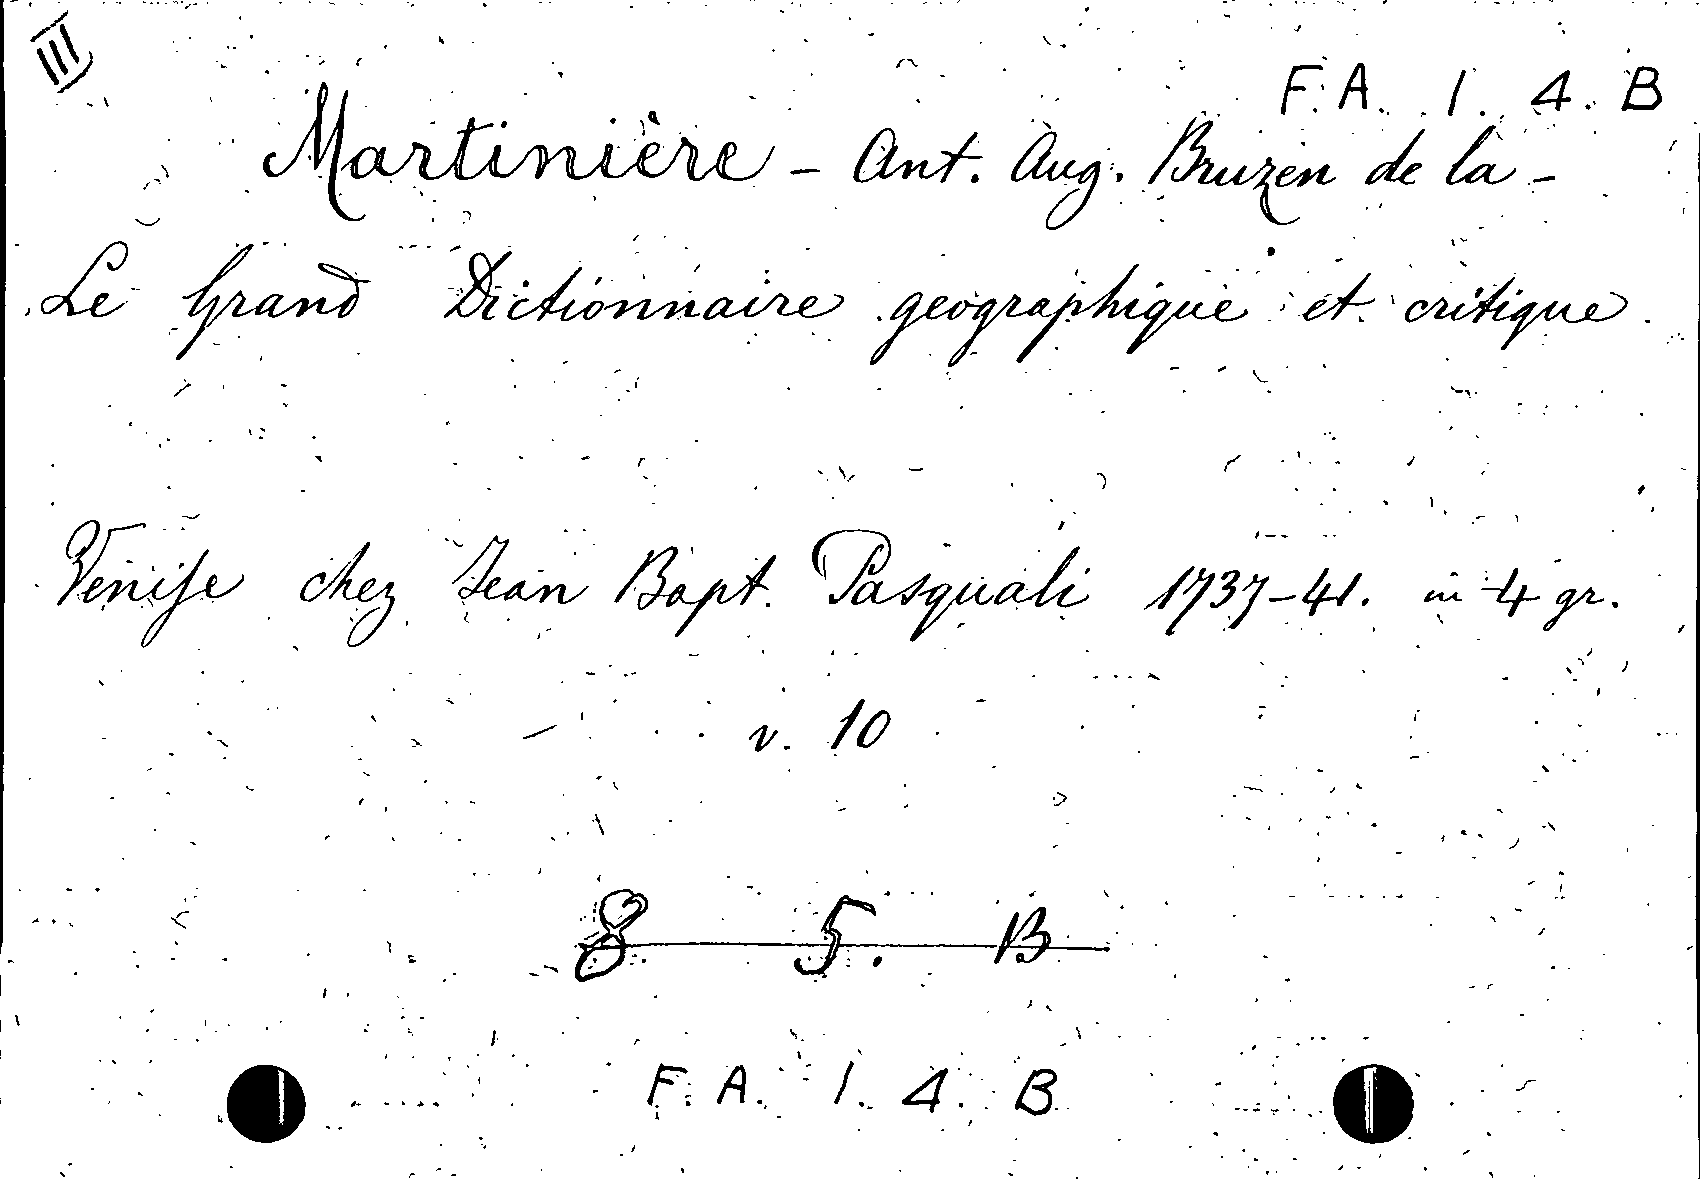 III
F. A. 1. 4. B
Martinière - Ant. Aug. Bruzen de la -
Le Grand Dictionnaire geographique et critique
Venise chez Jean Bapt. Pasquali 1737-41. in 4 gr.
v. 10
8 5. B
F. A. 1. 4. B